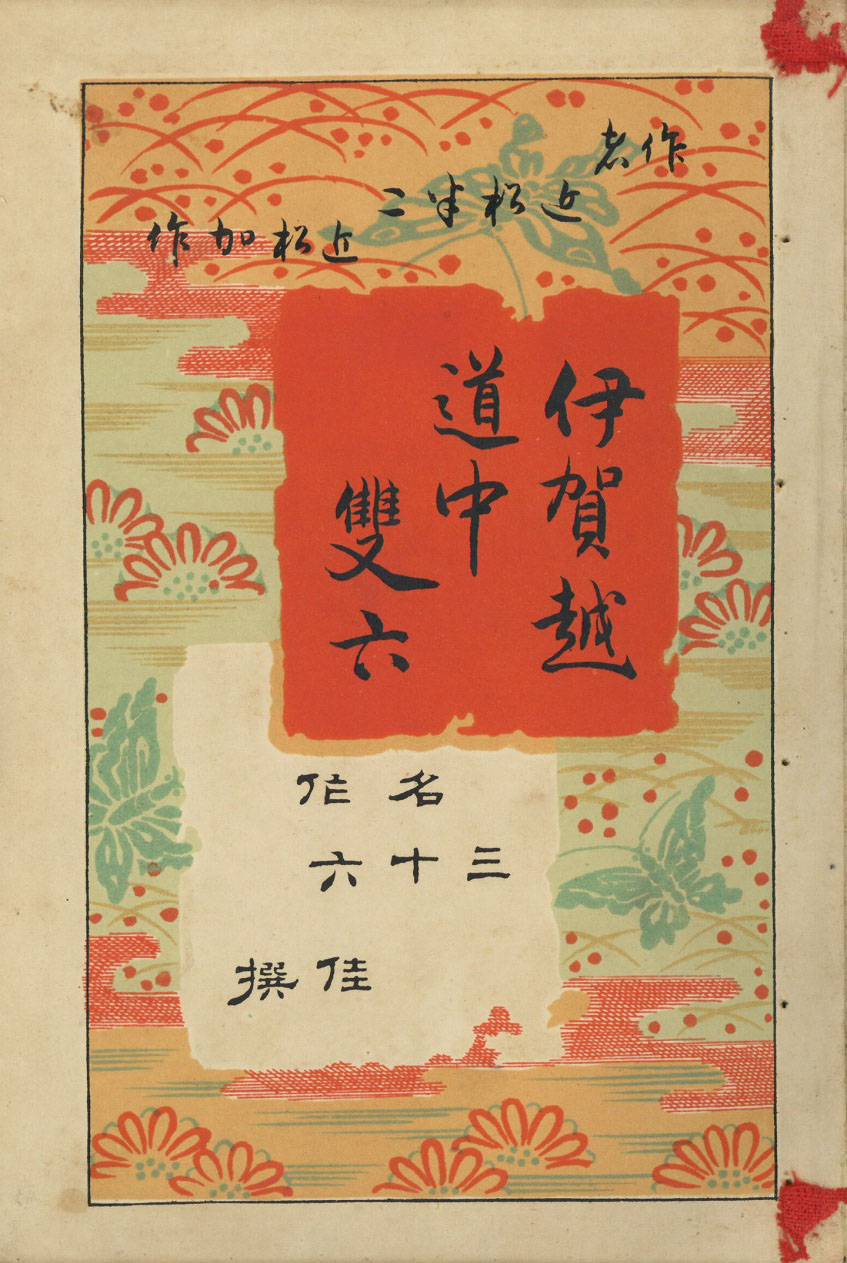 作者
近松半二
近松加作
伊賀越
道中
雙六
名作
三十六
佳撰